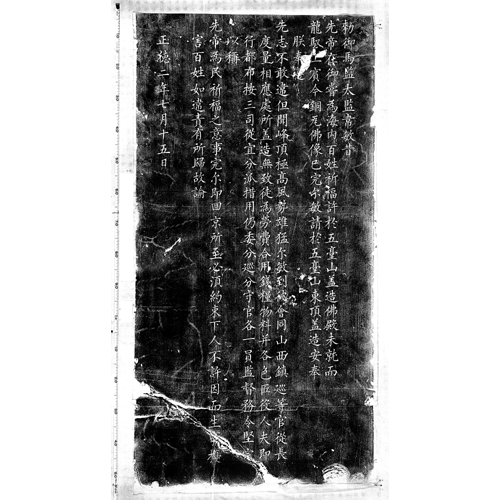 勑御馬監太監韋敏昔
先帝在御嘗為海內百姓祈福許於五臺山蓋造佛殿未就而
龍馭上賓今銅瓦佛像已完尔敏請於五臺山東頂蓋造安奉
朕
先志不敢違但聞峰頂極高風勢雄猛尔敏到彼會同山西鎮巡等官從長
度量相應處所蓋造無致徒為勞費合用錢糧物料并各色匠役人夫即
行都布按三司從宜分派措用仍委分巡分守官各一員監督務令堅
以稱
先帝為民祈福之意事完尔即回京所至必須約束下人不許因而生擾
害百姓如違責有所歸故諭
正德二年七月十五日